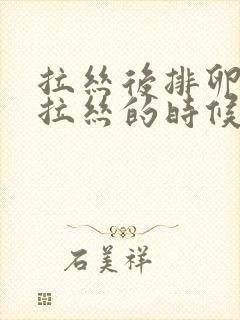 拉丝后排卵
拉丝的时候
石美祥